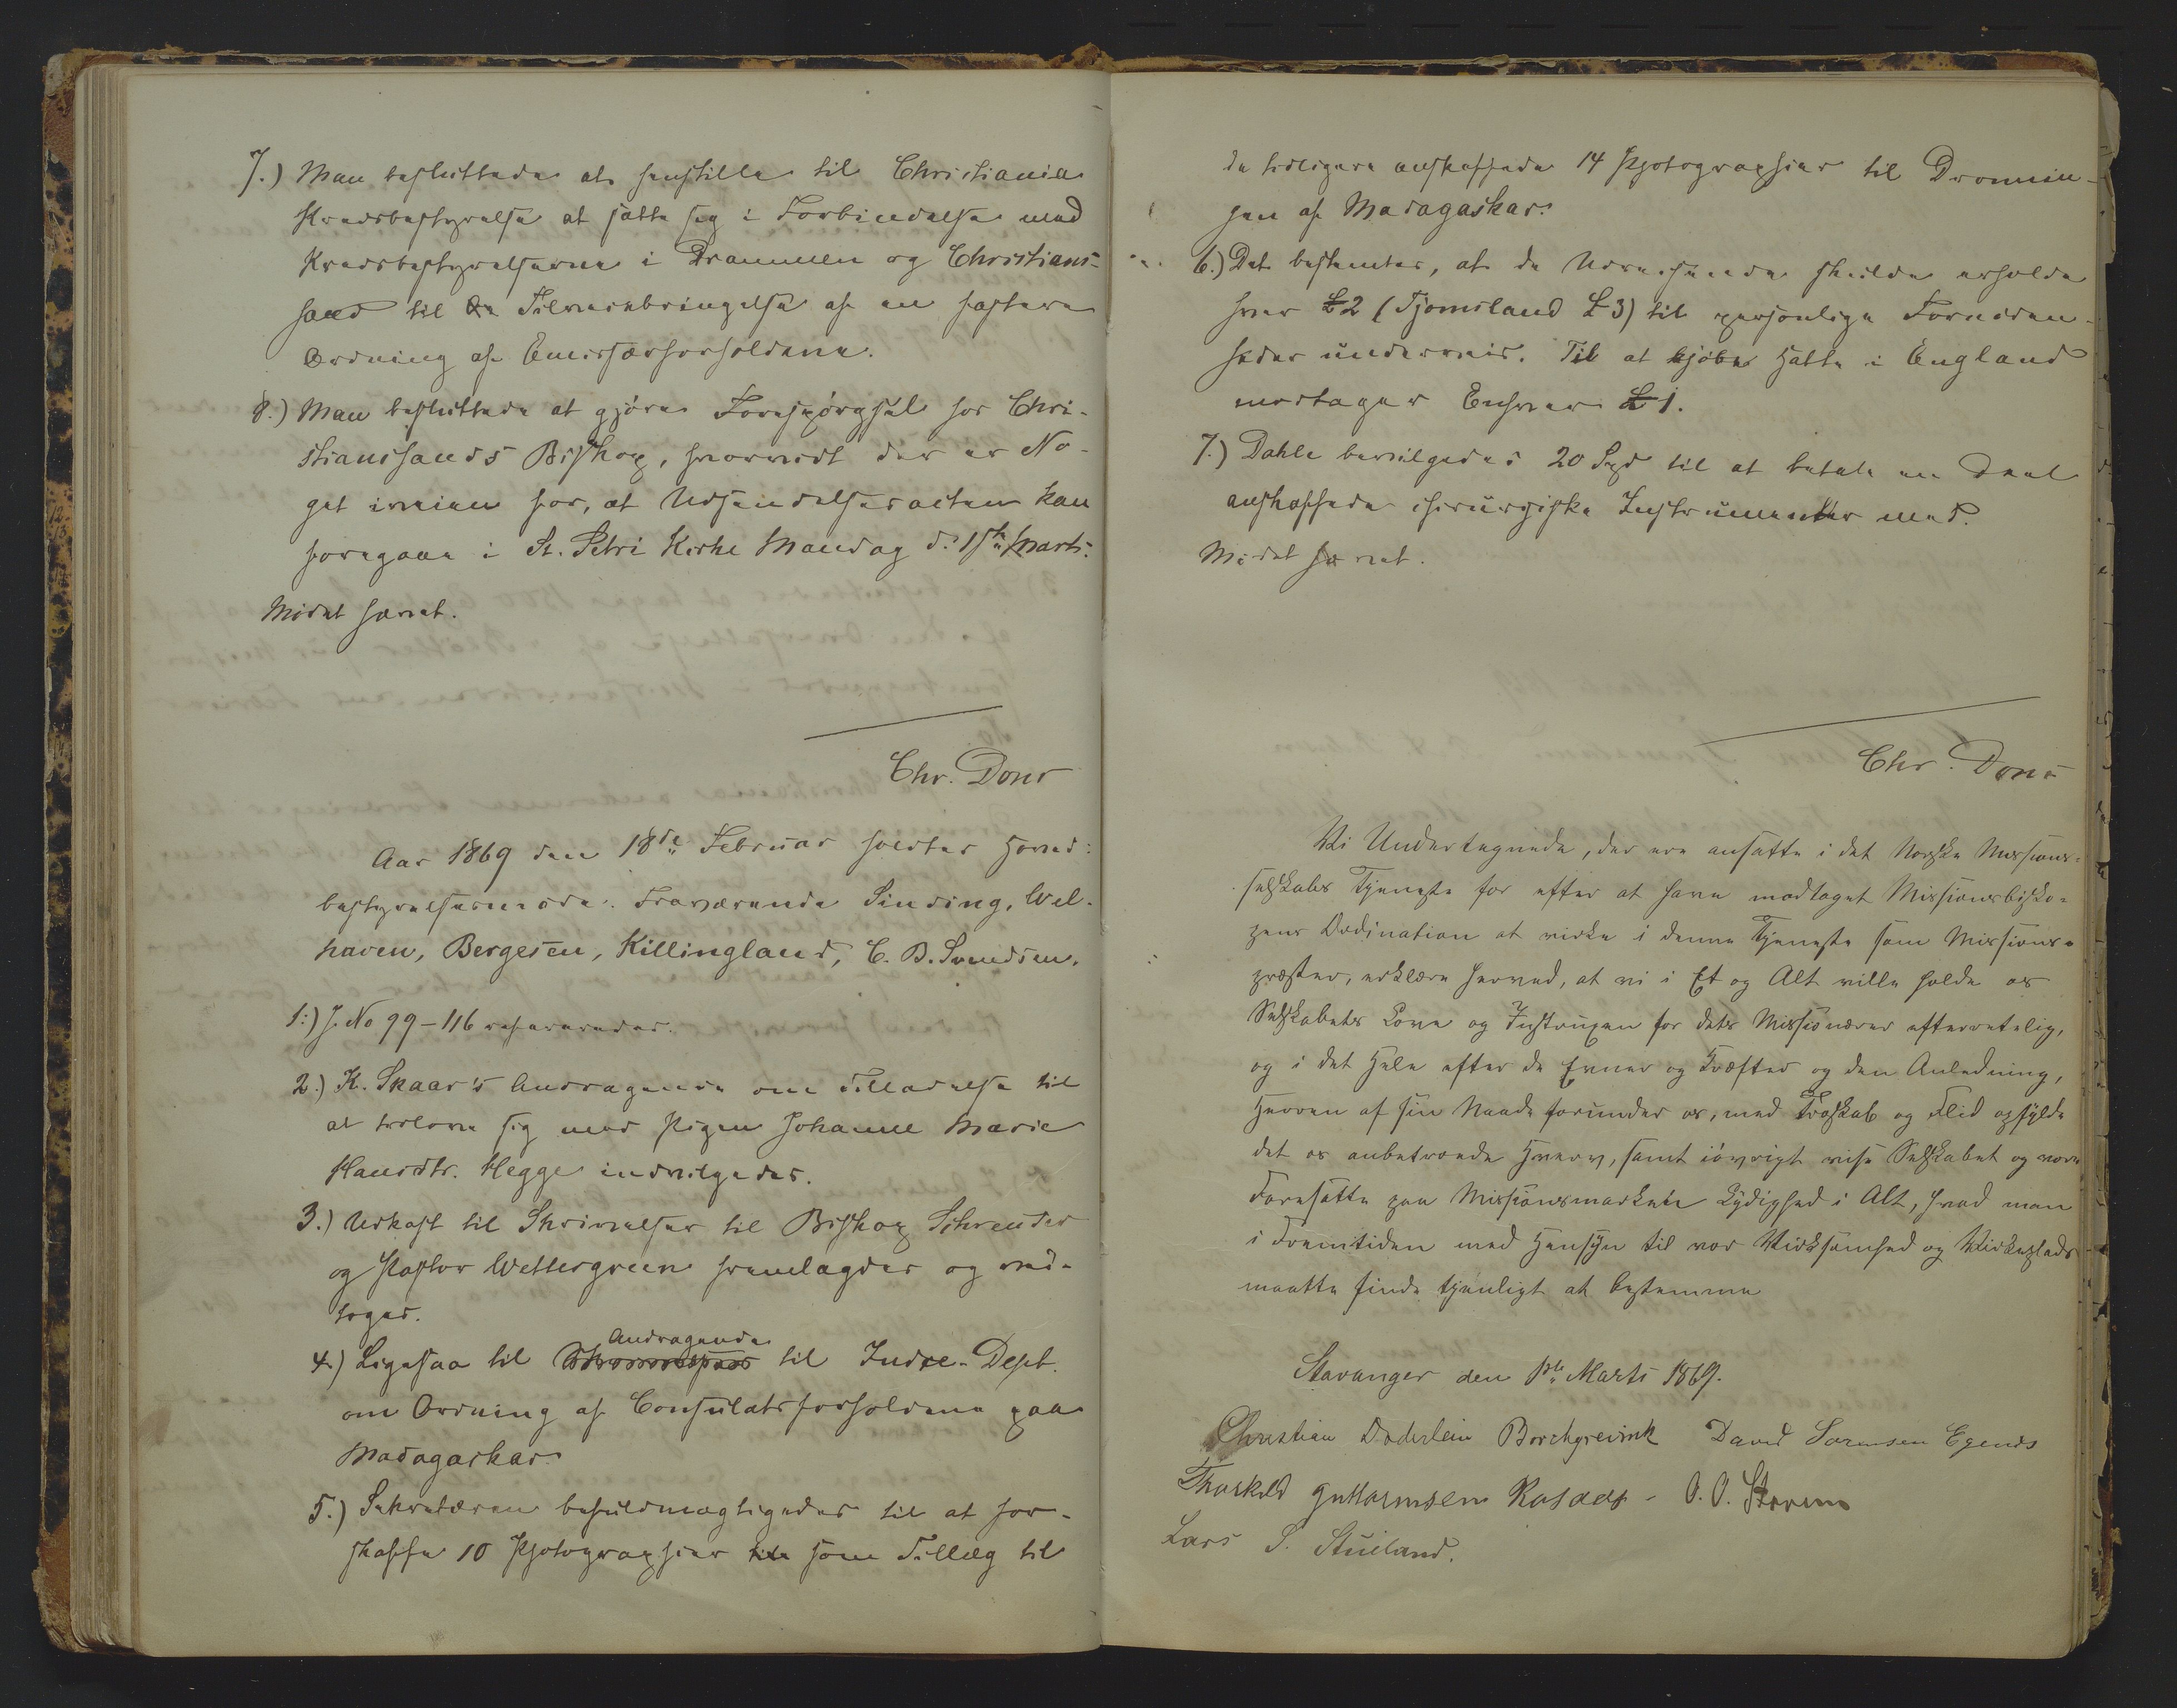 7.) Man besluttede at henstille til Christiania
Kredsbestyrelse at sætte sig i Forbindelse med
Kredsbestyrelserne i Drammen og Christians-
sand til Tilveiebringelse af en fastere
Ordning af Emissærforholdene.
8.) Man besluttede at gjøre Forespørgsel hos Chri-
stianssands Biskop, hvorvidt der er No-
get iveien for, at Udsendelsesacten kan
foregaae i St. Petri Kirke Mandag d. 1ste Marts.
Mødet hævet.
Chr. Dons
Aar 1869 den 18de Februar holdtes Hoved-
bestyrelsesmøde. Fraværende Sinding, Wel-
haven, Bergesen, Killingland, C. B. Svendsen.
1.) J. No 99-116 refereredes.
2.) K. Skaar's Andragende om Tilladelse til
at trolove sig med Pigen Johanne Marie
Hansdtr. Hegge indvilgedes.
3.) Udkast til Skrivelser til Biskop Schreuder
og Pastor Wettergreen fremlagdes og ved-
toges.
4.) Ligesaa til Andragende til Indre-Dept.
om Ordning af Consulatsforholdene paa
Madagaskar.
5.) Sekretæren befuldmægtigedes til at for-
skaffe 10 Photographier som Tillæg til
de tidligere anskaffede 14 Photographier til Dronnin-
gen af Madagaskar.
6.) Det bestemtes, at de Udreisende skulde erholde
hver £2 (Tjomsland £3) til personlige Fornøden-
heder underveis. Til at kjøbe Hatte i England
modtager Enhver £1.
7.) Dahle bevilgedes 20 Spd til at betale en Deel
anskaffede chirurgiske Instrumenter med.
Mødet hævet.
Chr. Dons
Vi Undertegnede, der ere ansatte i det Norske Missions-
selskabs Tjeneste for efter at have modtaget Missionsbisko-
pens Ordination at virke i denne Tjeneste som Missions-
præster, erklære herved, at vi i Et og Alt ville holde os
Selskabets Love og Instruxen for dets Missionærer efterretelig,
og i det Hele efter de Evner og Kræfter og den Anledning,
Herren af sin Naade forunder os, med Troskab og Flid opfylde
det os anbetroede Hverv, samt iøvrigt vise Selskabet og vore
Foresatte paa Missionsmarken Lydighed i Alt, hvad man
i Fremtiden med Hensyn til vor Virksomhed og Virkeplads
maatte finde tjenligt at bestemme
Stavanger den 1ste Marts 1869.
Christian Doderlein Borchgrevink David Sørensen Egenæs
Thorkild Guttormsen Rosaas - O. O. Storm
Lars S. Stueland.